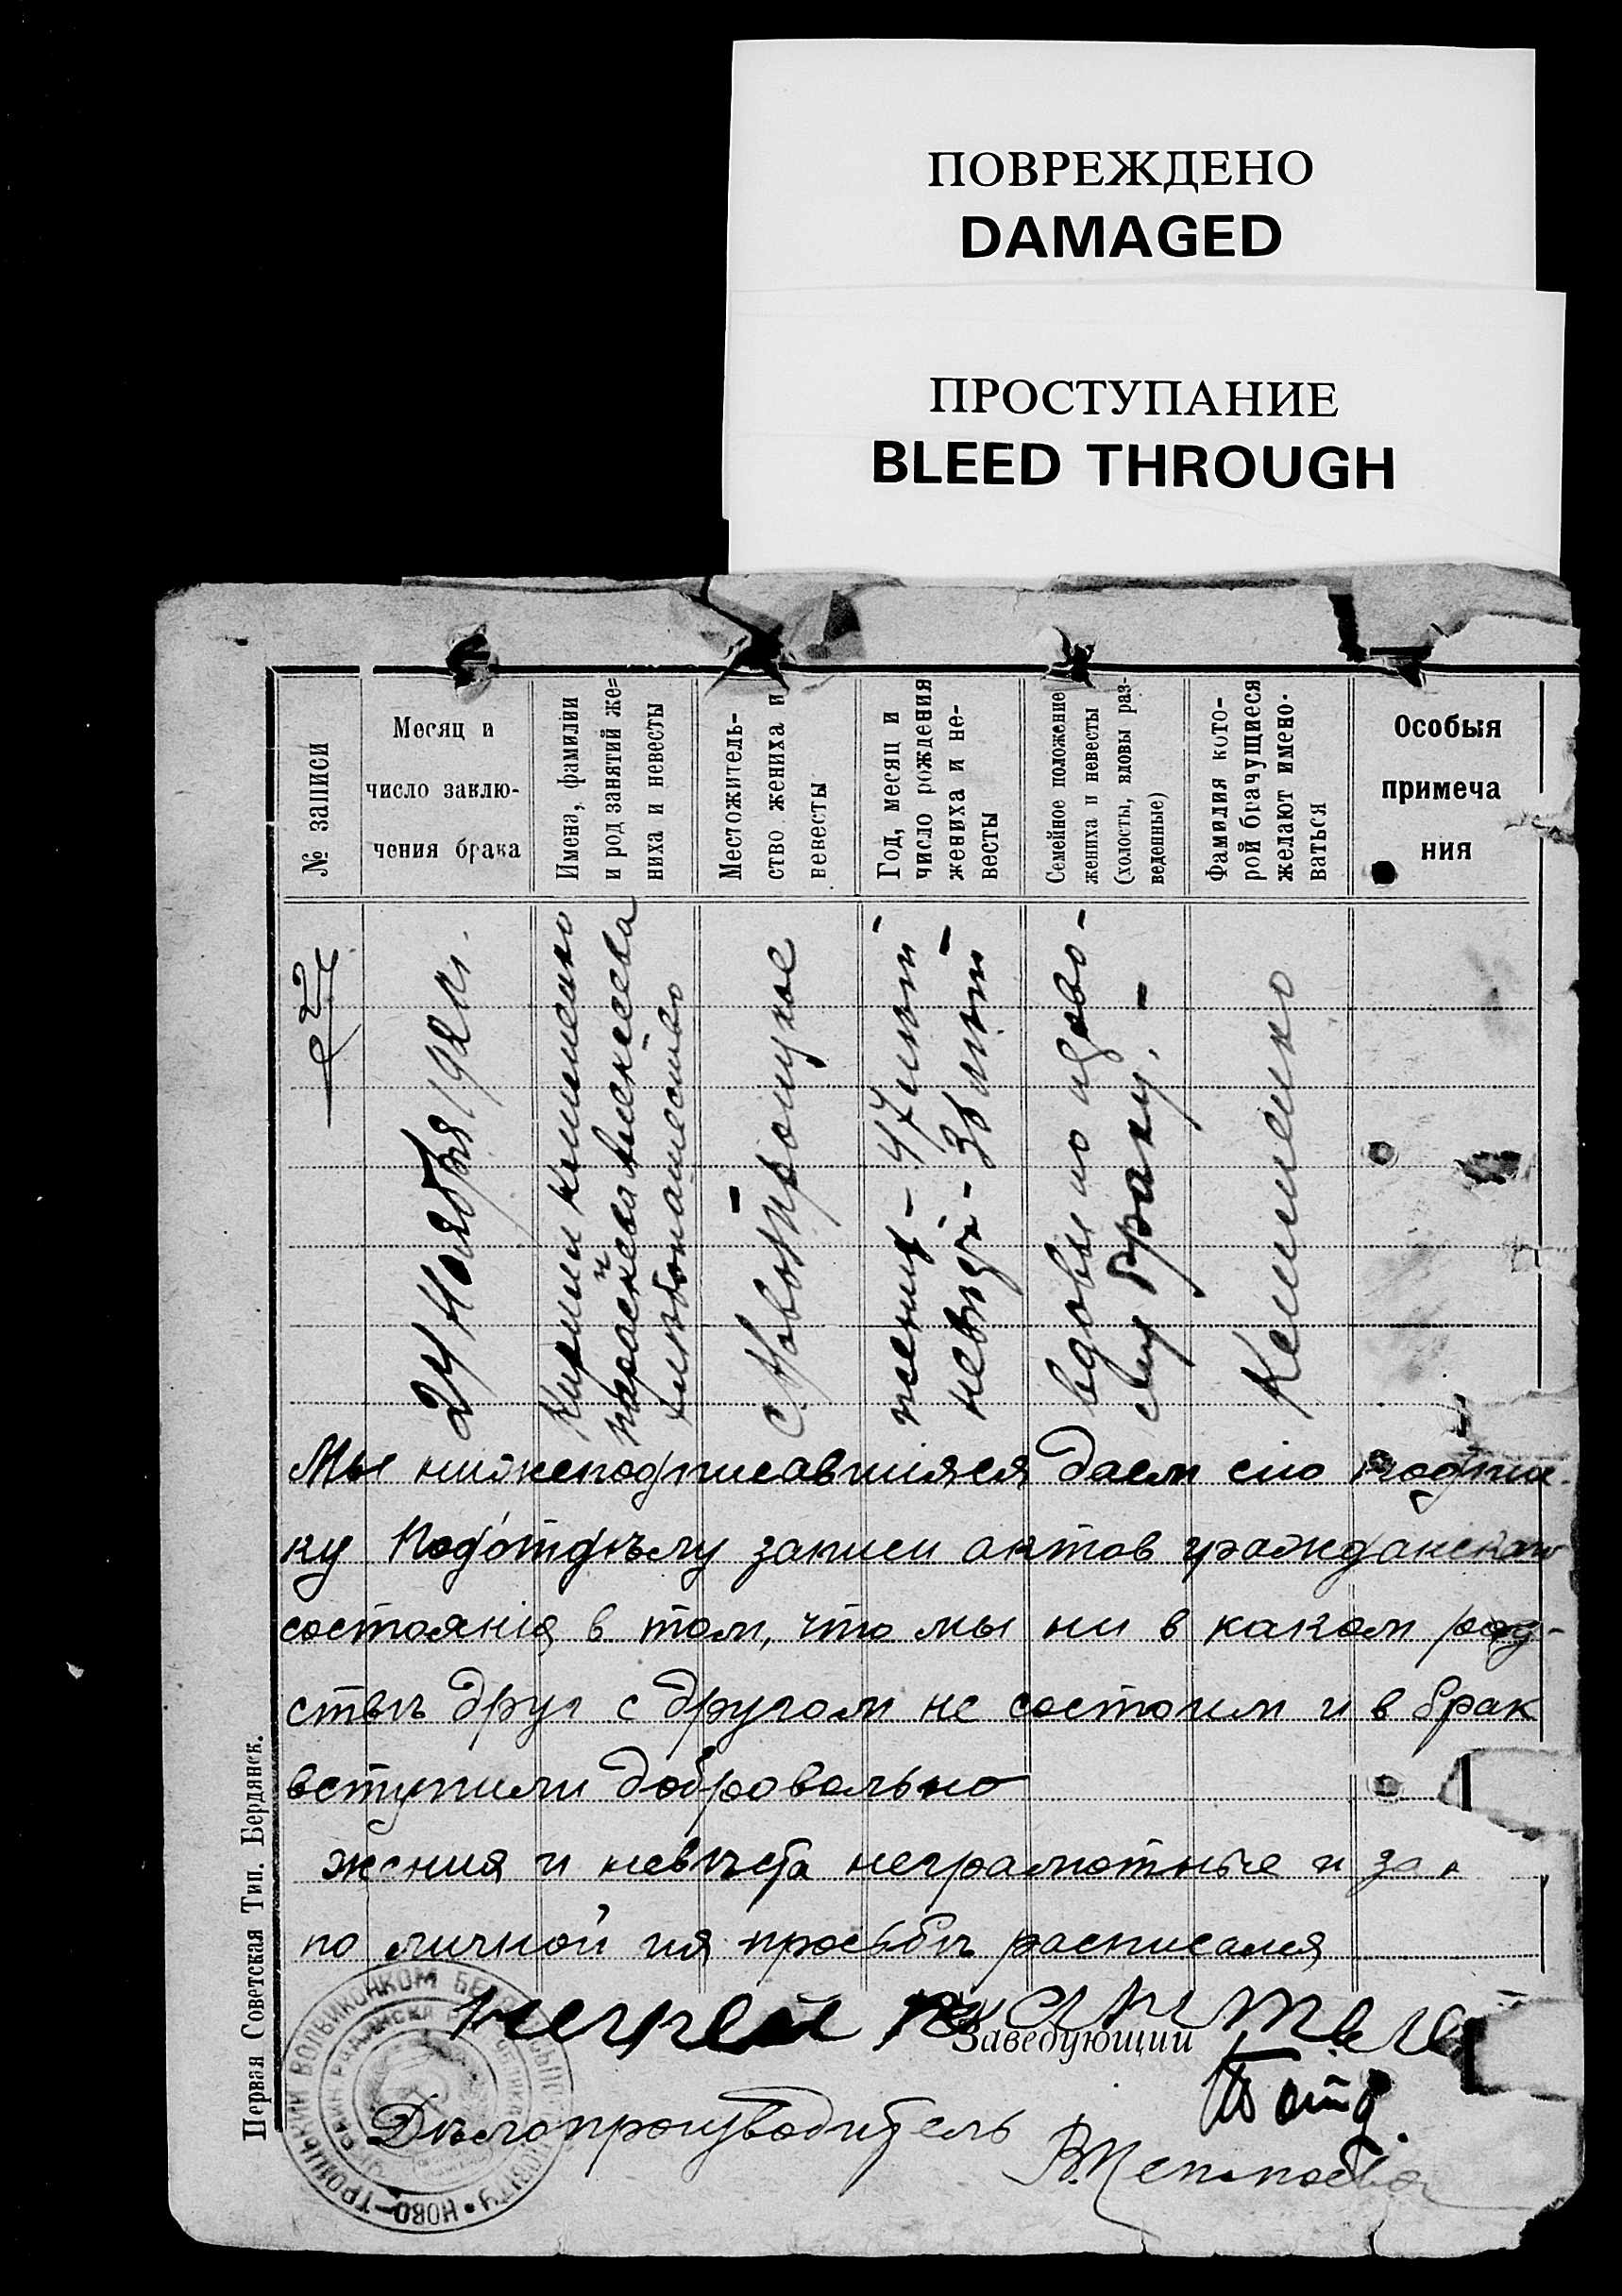 ПОВРЕЖДЕНО
DAMAGED
ПРОСТУПАНИЕ
BLEED THROUGH
№ записи
Месяц и
число заклю-
чения брака
Имена, фамилии
и род занятий же=
ниха и невесты
Местожитель-
ство жениха и
невесты
Год, месяц и
число рождения
жениха и не-
весты
Семейное положение
жениха и невесты
(холосты, вдовы раз-
веденные)
Фамилия кото-
рой брачущиеся
желают имено-
ваться
Особыя
примеча
ния
24 Ноября 192
и
хлебопашество
с. Новотроицкое
жених - 47 лет -
невеста - 38 лет -
вдовы по
браку. -
Клименко
Мы нижеподписавшияся даем сию подпис-
ку Подотделу записи актов гражданскаго
состояния в том, что мы ни в каком род-
стве друг с другом не состоим и в брак
вступили добровольно
жених и невѣста неграмотные и за
по личной их просьбѣ расписался
Заведующий
Дѣлопроизводитель
Первая Советская Тип. Бердянск.